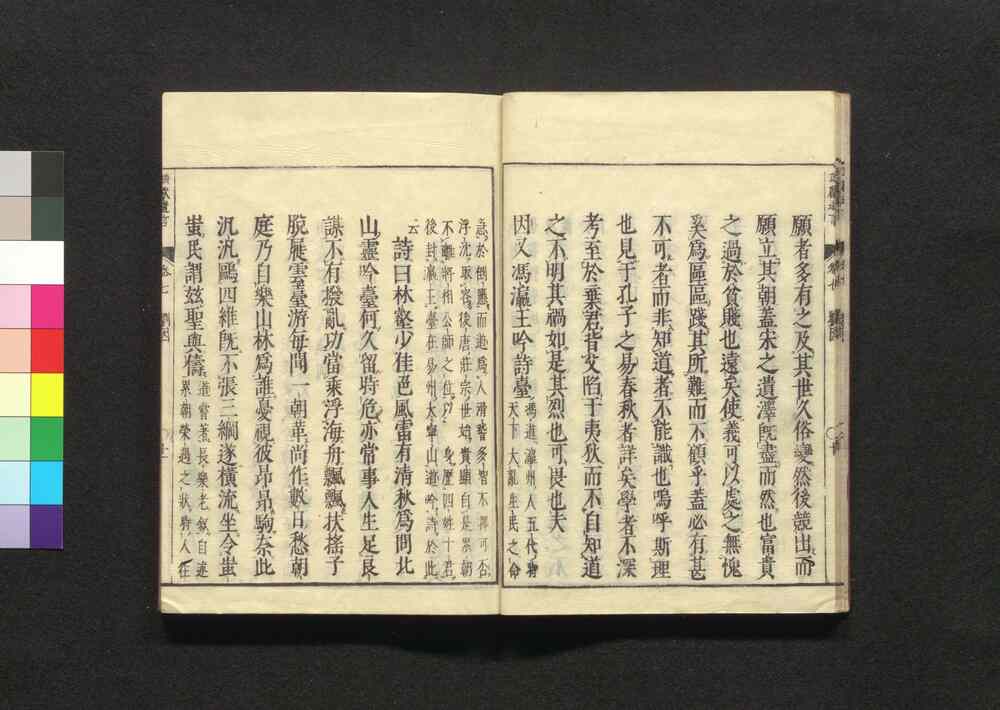 願者多有之及其世久俗變然後競出而
願立其朝蓋宋之遺澤既盡而然也富貴
之過於貧賤也遠矣使義可以處之無愧
奚爲區區踐其所難而不顧乎蓋必有甚
不可者而非知道者不能識也嗚呼斯理
也見于孔子之易春秋者詳矣學者不深
考至於棄君背父陷于夷狄而不自知道
之不明其禍如是其烈也可畏也夫
因又馮瀛王吟詩臺馮道瀛州人五代時
天下大亂生民之命
急於倒懸而道爲人滑稽多智不擇可否
浮沈取容後唐莊宗世始貴顯自是累朝
不離將相公師之位以身歷四姓十君
後封瀛王臺在易州太寧山道吟詩於此
云
詩曰林壑少佳色風雷有清秋爲問北
山靈吟臺何久留時危亦常事人生足良
謀不有撥亂功當乘浮海舟飄飄扶搖子
脫屣雲臺游每聞一朝革尚作數日愁朝
庭乃自樂山林爲誰憂視彼昂昂駒奈此
汎汎鷗四維既不張三綱遂橫流坐令蚩
蚩民謂玆聖與儔道嘗著長樂老叙自述
累朝榮遇之狀時人往